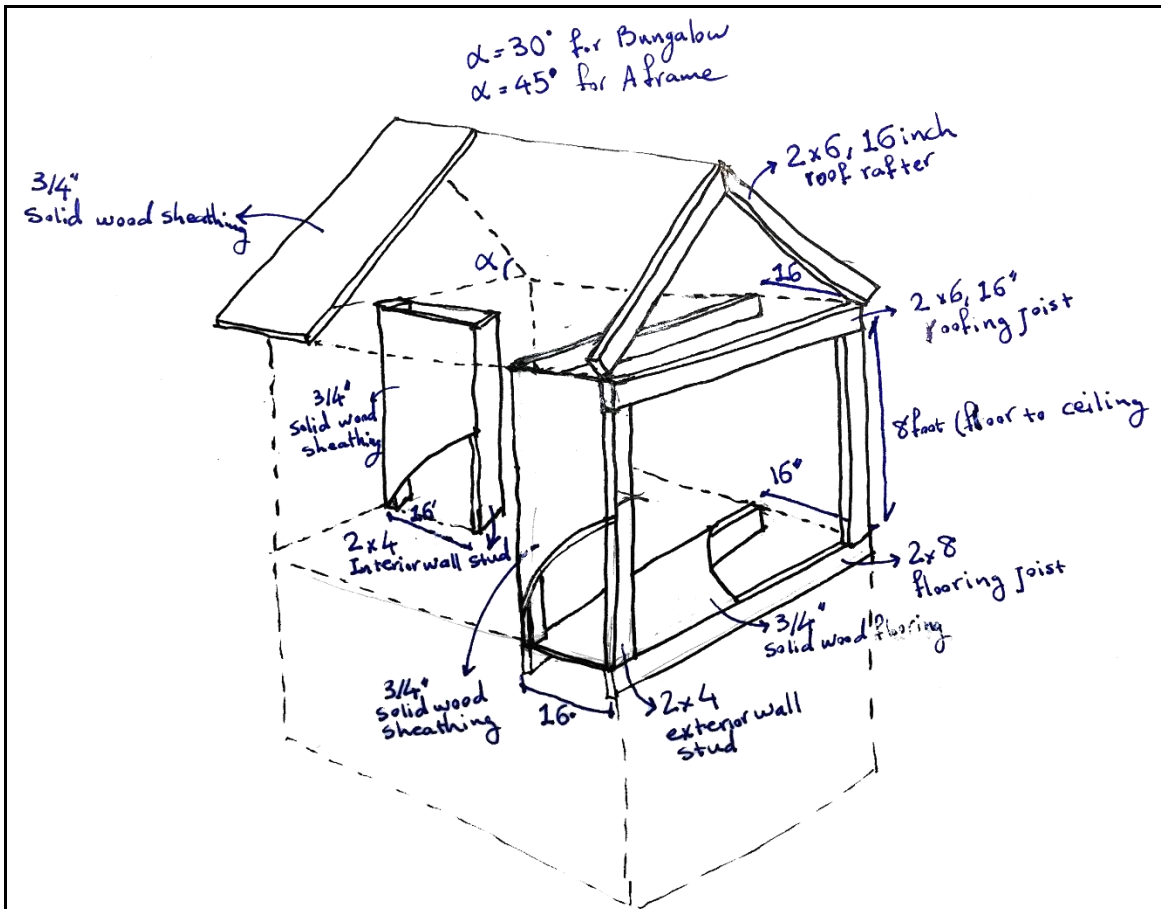 α = 30° for Bungalow
α = 45° for A frame
2 x 6, 16 inch
roof rafter
3/4"
Solid wood sheathing
α
16
2 x 6, 16"
roofing joist
3/4"
solid wood
sheathing
8 foot (floor to ceiling
16"
16'
2 x 4
Interior wall stud
2 x 8
flooring joist
3/4"
solid wood flooring
3/4"
solid wood
sheathing
16"
2 x 4
exterior wall
stud